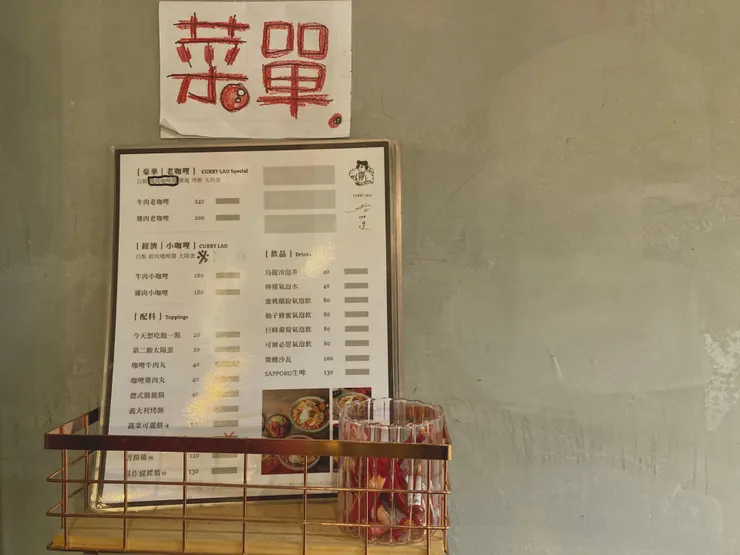 菜單
{ 豪華 | 老咖哩 } CURRY LAO Special
牛肉老咖哩 240
雞肉老咖哩 200
{ 經濟 | 小咖哩 } CURRY LAO
牛肉小咖哩 180
雞肉小咖哩 180
{ 配料 } Toppings
今天想吃飽一點 20
第二顆太陽蛋 20
咖哩牛肉丸 40
咖哩雞肉丸 40
德式脆腸 40
義大利烤餅
蔬菜可麗餅
120
130
CURRY LAO
{ 飲品 } Drinks
烏龍冷泡茶 40
檸檬氣泡水 40
蜜桃繽紛氣泡飲 80
柚子蜂蜜氣泡飲 80
巨峰葡萄氣泡飲 80
可爾必思氣泡飲 80
微醺沙瓦 100
SAPPORO生啤 130